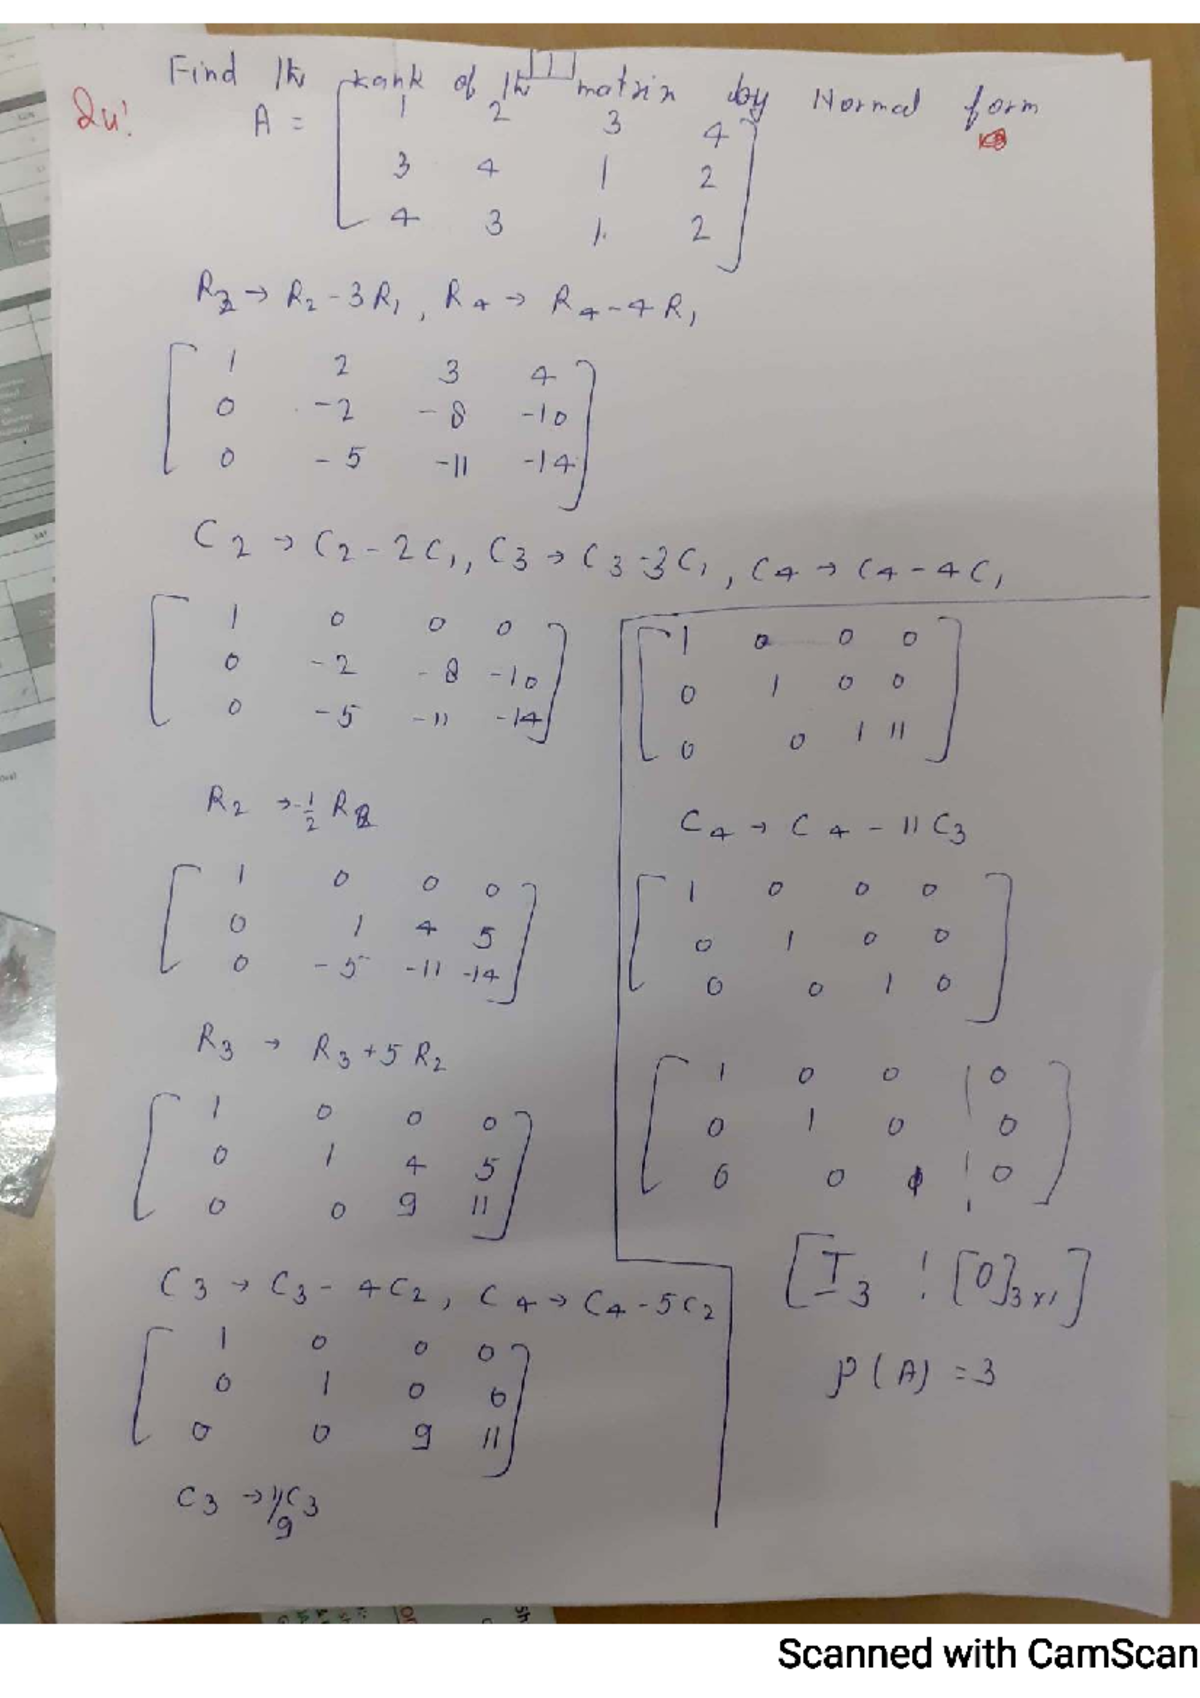 Find the rank of the matrix by Normal form
Qu:
A = [ 1 2 3 4
3 4 1 2
4 3 1 2 ]
R2 → R2 - 3R1, R4 → R4 - 4R1
[ 1 2 3 4
0 -2 -8 -10
0 -5 -11 -14 ]
C2 → C2 - 2C1, C3 → C3 - 3C1, C4 → C4 - 4C1
[ 1 0 0 0
0 -2 -8 -10
0 -5 -11 -14 ]
R2 → -1/2 R2
[ 1 0 0 0
0 1 4 5
0 -5 -11 -14 ]
R3 → R3 + 5R2
[ 1 0 0 0
0 1 4 5
0 0 9 11 ]
C3 → C3 - 4C2, C4 → C4 - 5C2
[ 1 0 0 0
0 1 0 0
0 0 9 11 ]
C3 → 1/9 C3
[ 1 0 0 0
0 1 0 0
0 0 1 11 ]
C4 → C4 - 11C3
[ 1 0 0 0
0 1 0 0
0 0 1 0 ]
[ 1 0 0 | 0
0 1 0 0
0 0 1 | 0 ]
[ I3 ⋮ [0]3×1 ]
ρ(A) = 3
Scanned with CamScan